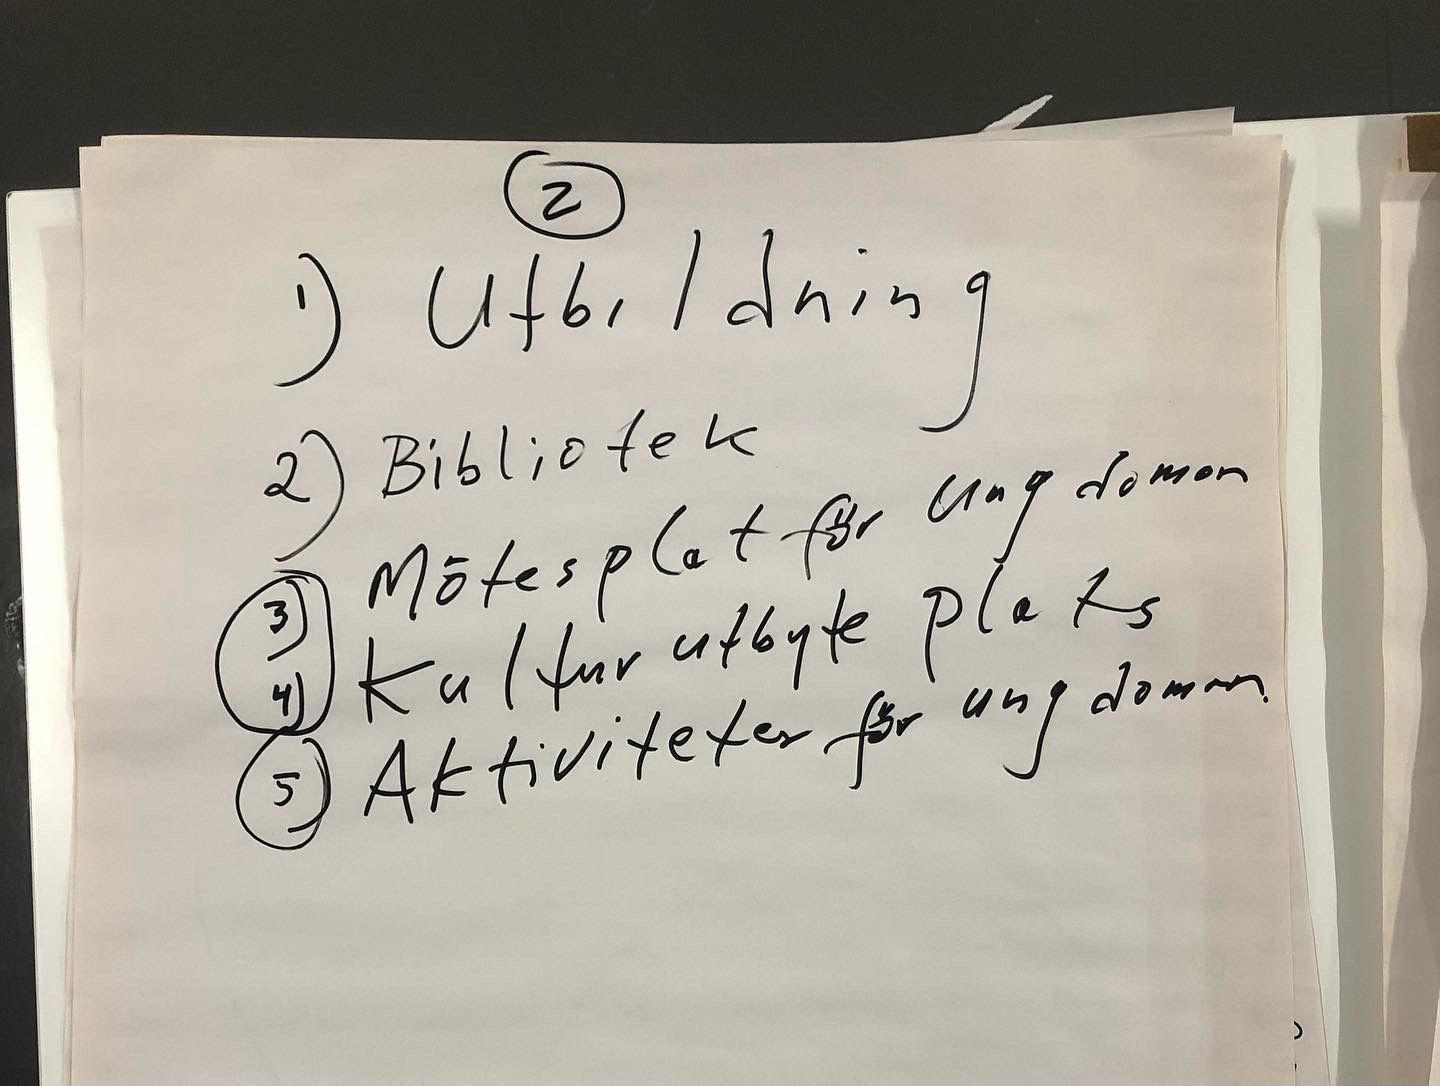 2
1) Utbildning
2) Bibliotek
3) Mötesplat för Ungdomar
4) Kultur utbyte plats
5) Aktiviteter för ungdomar